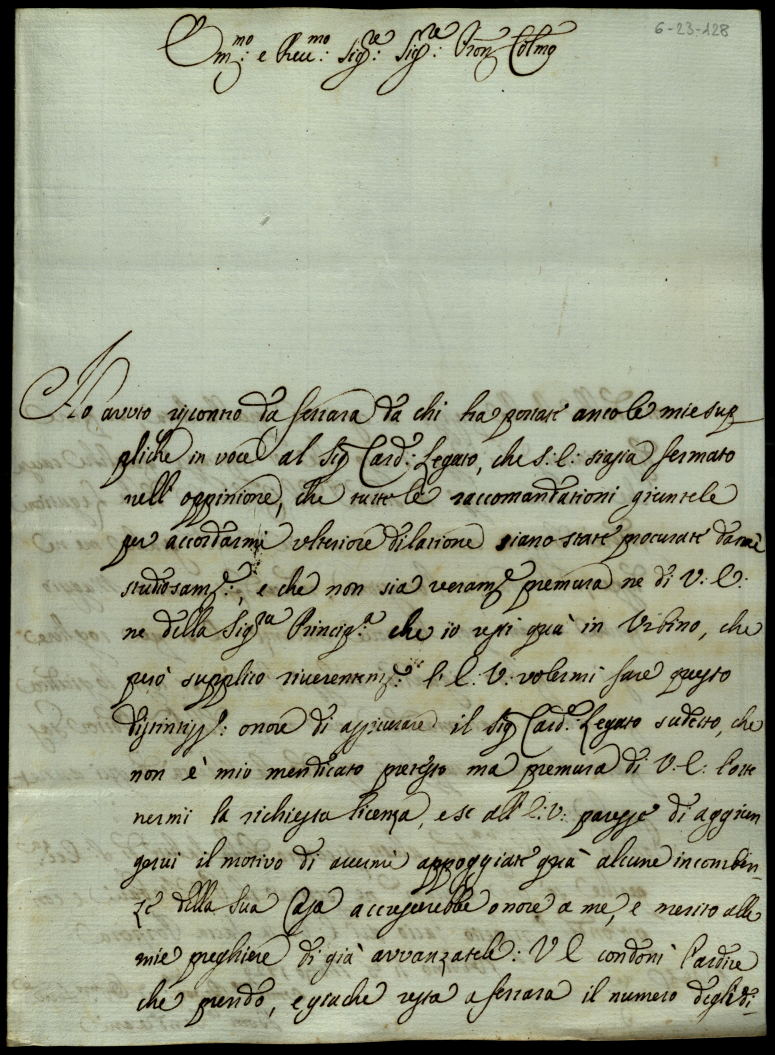 6-23-128
Em.mo: e Reu.mo: Sig.re: Sig.re: Pron Colmo
Ho avuto riscontro da ferrara da chi ha portate anco le mie sup
pliche in voce al Sig Card: Legato, che S: E: siasia fermato
nell' oppinione, che tutte le raccomandationi giuntele
per accordarmi ulteriore dilatione siano state procurate da me
studiosam.e:, e che non sia veram.e premura ne di V: E:
ne della Sig.ra Princip.a: che io resti quà in Urbino, che
però supplico riverentem.e: l'E: V: volermi fare questo
distintiss.o: onore di assicurare il Sig Card: Legato sudetto, che
non è mio mendicato pretesto ma premura di V: E: l'otte
nermi la richiesta licenza, e se all'E: V: paresse di aggiun
gervi il motivo di avermi appoggiate quà alcune incomben-
ze della Sua Casa accrescerebbe onore a me, e merito alle
mie preghiere di già avvanzatele: V E condoni l'ardire
che prendo, e giache resta a ferrara il numero degli di-